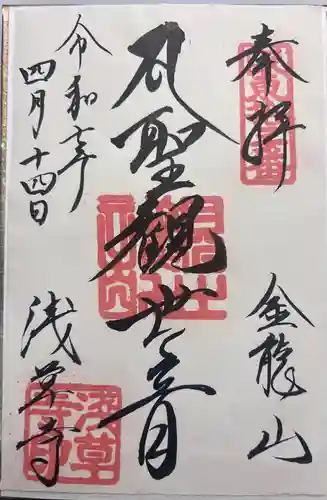 奉拝
金龍山
聖観世音
浅草寺
令和七年
四月十四日